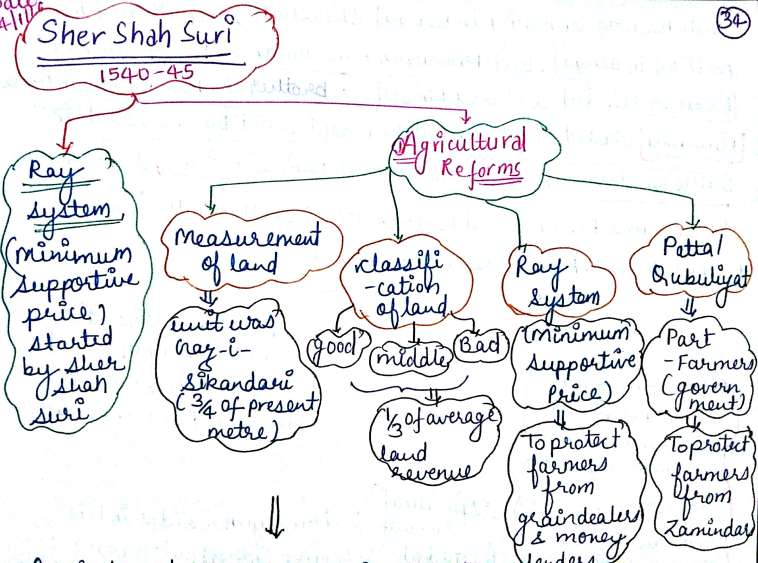 34
Sher Shah Suri
1540-45
Ray
System
(minimum
supportive
price)
started
by sher
shah
suri
① Agricultural
Reforms
measurement
of land
unit was
Gaz-i-
Sikandari
(3/4 of present
metre)
classifi
-cation
of land
good
middle
Bad
1/3 of average
land
revenue
Ray
System
(minimum
supportive
Price)
To protect
farmers
from
graindealers
& money
lenders
Patta/
Qubuliyat
Part
-Farmers
(govern
ment)
To protect
farmers
from
Zamindar